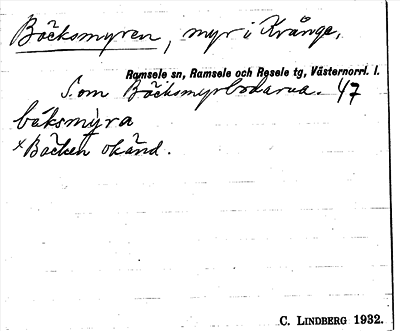 Bäcksmyren, myr i Krånge,
Ramsele sn, Ramsele och Resele tg, Västernorrl. l.
S. om Bäcksmyrbodarna. 47
bäksmy̆ra
x Bäcken okänd.
C. LINDBERG 1932.